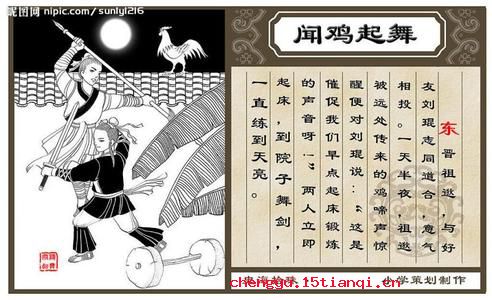 昵图网 nipic.com/sunlyl216
闻鸡起舞
东晋祖逖，与好
友刘琨志同道合，意气
相投。一天半夜，祖逖
被远处传来的鸡啼声惊
醒便对刘琨说：“这是
催促我们早点起床锻炼
的声音呀！”两人立即
起床，到院子舞剑，
一直练到天亮。
小学策划制作
chengdu.15tianqi.cn